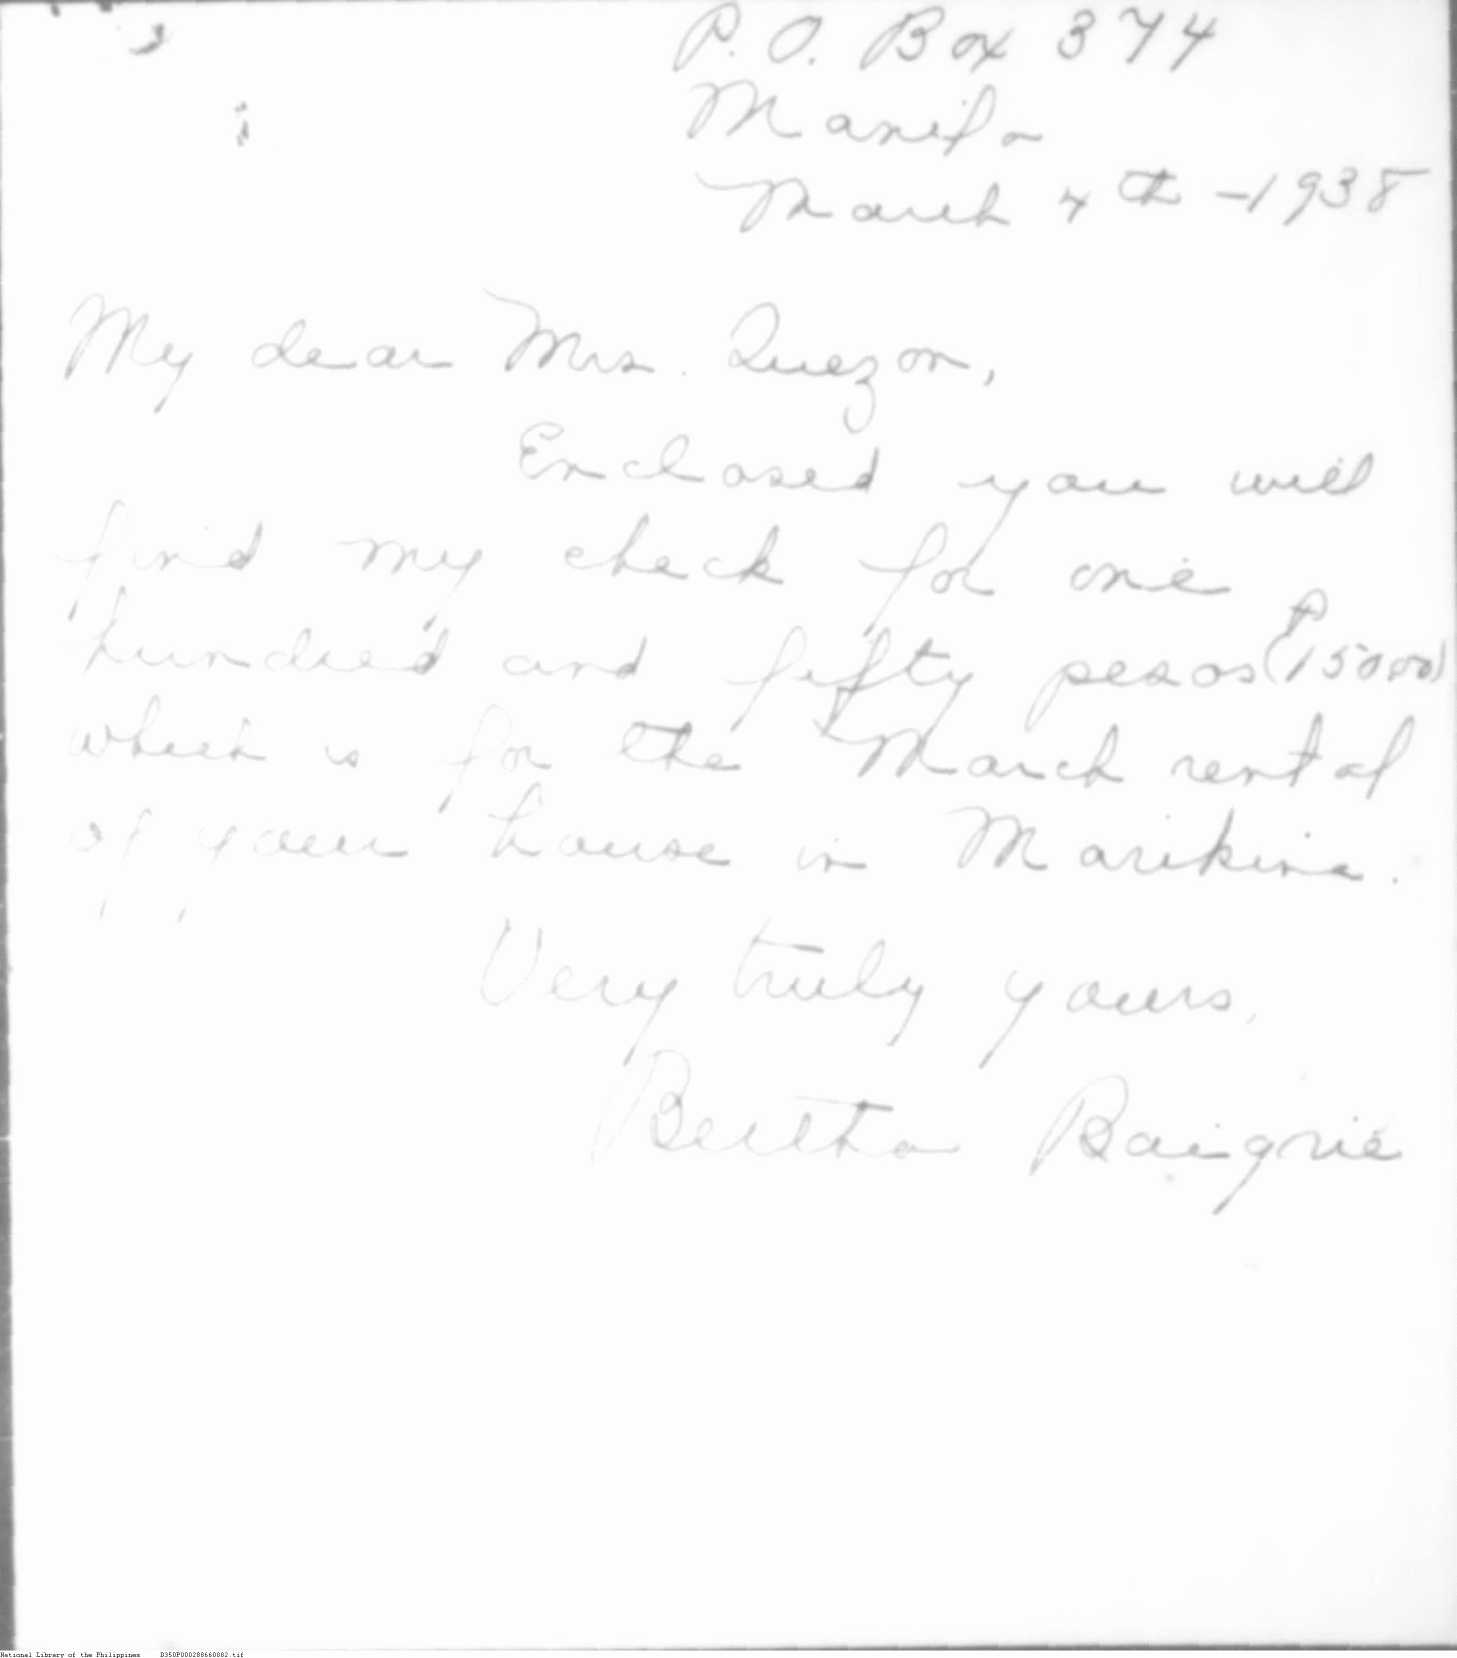 P. O. Box 374
Manila
March 4th - 1938
My dear Mrs. Quezon,
Enclosed you will
find my check for one
hundred and fifty pesos (₱150.00)
which is for the March rental
of your house in Marikina.
Very truly yours,
Bertha Baigrie
National Library of the Philippines D350P000288660002.tif